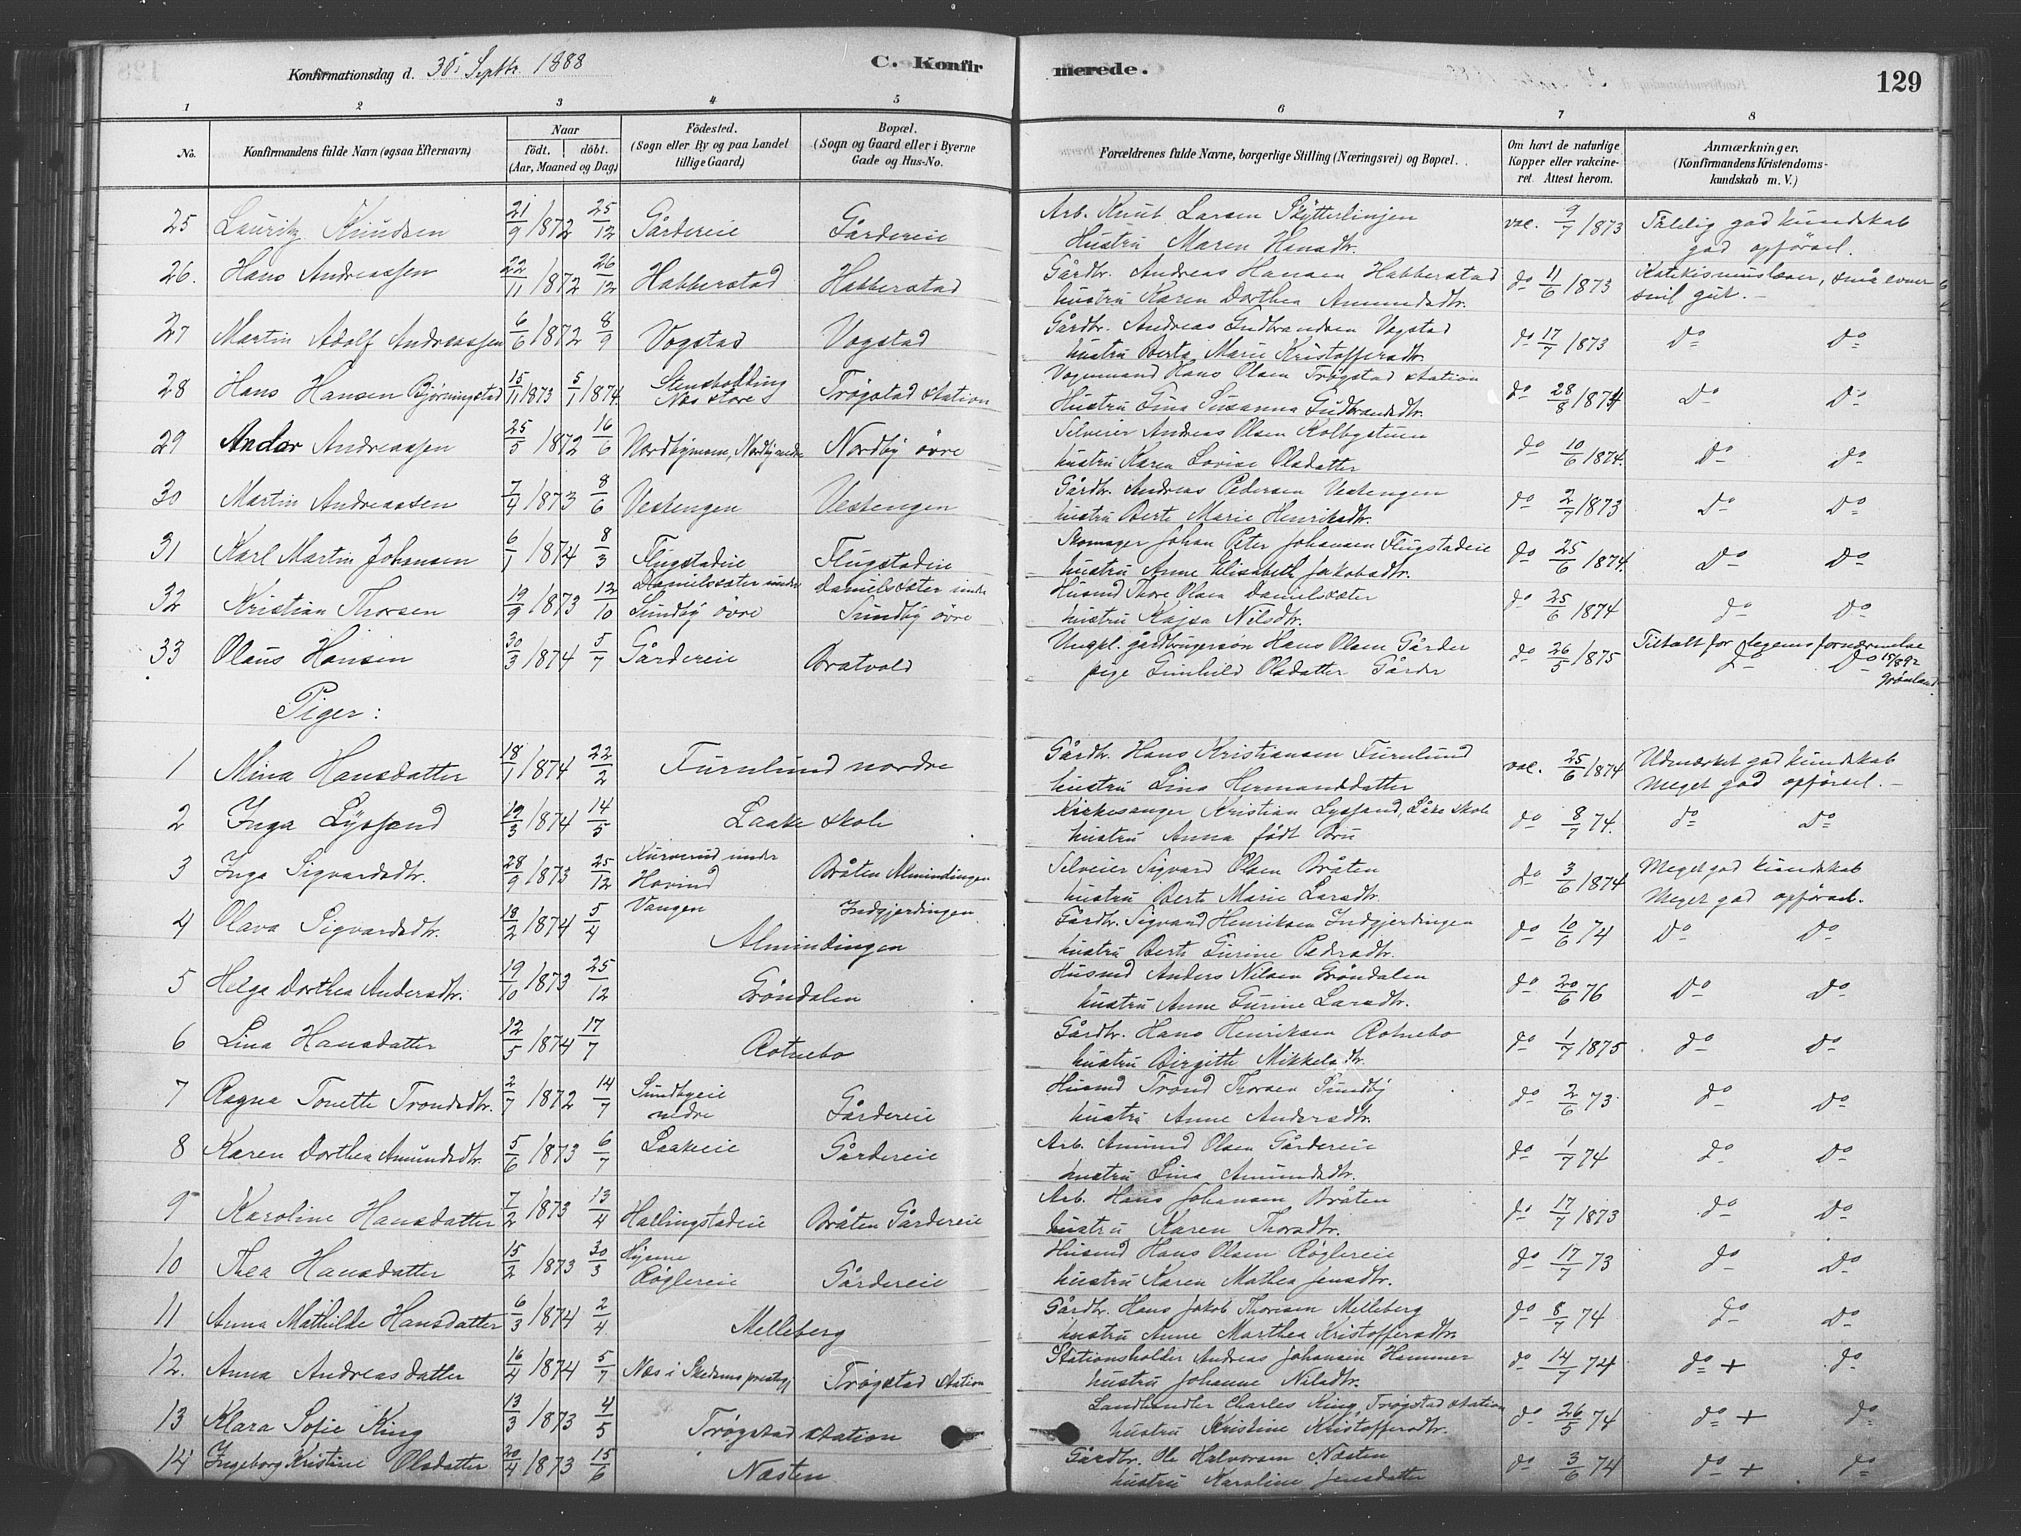 Konfirmationsdag d. 30. Septbr. 1888
C. Konfirmerede.
129
1 2 3 4 5 6 7 8
No.
Konfirmandens fulde Navn (ogsaa Efternavn)
Naar født. døbt. (Aar, Maaned og Dag)
Fødested. (Sogn eller By og paa Landet tillige Gaard)
Bopæl. (Sogn og Gaard eller i Byerne Gade og Hus-No.
Forældrenes fulde Navne, borgerlige Stilling (Næringsvei) og Bopæl.
Om havt de naturlige Kopper eller vakcineret. Attest herom.
Anmærkninger. (Konfirmandens Kristendomskundskab m. V.)
25 Lauritz Knudsen 21/9 1872 25/12 Gårdereie Gårdereie Arb. Knut Larsen Skytterlinjen vac. 9/7 1873 Tålelig god kundskab
Hustru Maren Hansdtr. god opförsel.
26. Hans Andreassen 22/11 1872 26/12 Habberstad Habberstad Gårdbr. Andreas Hansen Habberstad do 11/6 1873 Katekismuslæser, små evner
hustru Karen Dorthea Amundsdtr. snil gut.
27 Martin Adolf Andreassen 6/6 1872 8/9 Vogstad Vogstad Gårdbr. Andreas Gudbrandsen Vogstad do 17/7 1873 do do
hustru Berte Marie Kristoffersdtr.
28 Hans Hansen Bjørningstad 15/11 1873 5/1 1874 Næs store Trøgstad station Vognmand Hans Olsen Trøgstad station do 28/8 1874 do do
Hustru Gina Susanna Gudbrandsdtr.
29 Andor Andreassen 25/5 1872 16/6 Nordbymoen, Nordby nedre Nordby övre Selveier Andreas Olsen Kolbystuen do 10/6 1874. do do
hustru Karen Lovise Olsdatter
30 Martin Andreassen 7/4 1873 8/6 Vestengen Vestengen Gårdbr. Andreas Pedersen Vestengen do 2/7 1873 do do
hustru Berte Marie Henriksdtr.
31 Karl Martin Johansen 6/1 1874 8/3 Flugstadeie Flugstadeie Skomager Johan Peter Johansen Flugstadeie do 25/6 1874. do do
hustru Anne Elisabeth Jakobsdtr.
32 Kristian Thorsen 19/9 1873 12/10 Danielsæter under Sundby övre Danielsæter under Sundby övre Husmd Thore Olsen Danielsæter do 25/6 1874 do do
hustru Kajsa Nilsdtr.
33 Olaus Hansen 30/3 1874 5/7 Gårdereie Bratvold Ungkl. gårdbrugersøn Hans Olsen Gårder do 26/5 1875 Tiltalt for legemsfornærmelse
pige Gunhild Olsdatter Gårder do do 15/8 92 Grönland
Piger:
1 Mina Hansdatter 18/1 1874 22/2 Furulund nordre Gårdbr. Hans Kristiansen Furulund vac. 25/6 1874 Udmærket god kundskab
hustru Lina Hermanddatter Meget god opförsel.
2 Inga Lyssand 19/3 1874 14/5 Laake skole Kirkesanger Kristian Lyssand, Låke skole do 8/7 74. do do
hustru Anna födt Bru
3 Inga Sigvardsdtr. 28/9 1873 25/12 Kurverud under Hovind Bråten Almindingen Selveier Sigvard Olsen Bråten do 3/6 1874 Meget god kundskab
hustru Berte Marie Larsdtr. Meget god opførsel.
4 Olava Sigvardsdtr. 18/2 1874 5/4 Vangen Indgjerdingen Almindingen Gårdbr. Sigvard Henriksen Indgjerdingen do 10/6 74 do do
hustru Berte Gurine Pedersdtr.
5 Helga Dorthea Andersdtr. 19/10 1873 25/12 Gröndalen Husmd Anders Nilsen Gröndalen do 20/6 76 do do
hustru Anne Gurine Larsdtr.
6 Lina Hansdatter 12/5 1874 17/7 Rotnebo Gårdbr. Hans Henriksen Rotnebo do 1/7 1875 do do
hustru Birgitte Mikkelsdtr.
7 Ragna Tonette Trondsdtr. 2/7 1872 14/7 Sundbyeie nedre Gårdereie Husmd Trond Thorsen Sundby do 2/6 73 do do
hustru Anne Andersdtr.
8 Karen Dorthea Amundsdtr. 5/6 1873 6/7 Laakeeie Gårdereie Arb. Amund Olsen Gårdereie do 1/7 74 do do
hustru Lina Amundsdtr.
9 Karoline Hansdatter 7/2 1873 13/4 Hallingstadeie Bråten Gårdereie Arb. Hans Johansen Bråten do 17/7 1873 do do
hustru Karen Thorsdtr.
10 Thea Hansdatter 15/2 1873 30/3 Röglereie Gårdereie Husmd Hans Olsen Röglereie do 17/7 73 do do
hustru Karen Mathea Jensdtr.
11 Anna Mathilde Hansdatter 6/3 1874 2/4 Melleberg Gårdbr. Hans Jakob Thoresen Melleberg do 8/7 74 do do
hustru Anne Marthea Kristoffersdtr.
12. Anna Andreasdatter 16/4 1874 5/7 Næs i Skedsmo prestegj. Trögstad station Stationsholder Andreas Johansen Hammer do 14/7 74 do + do
hustru Johanne Nilsdtr.
13 Klara Sofie King 13/3 1873 4/5 Trögstad station Landhandler Charles King, Trögstad station do 26/5 74 do + do
hustru Kristine Kristoffersdtr.
14 Ingeborg Kristine Olsdatter 20/4 1873 15/6 Næsten Gårdbr. Ole Halvorsen Næsten do 3/6 74 do + do
hustru Karoline Jensdatter